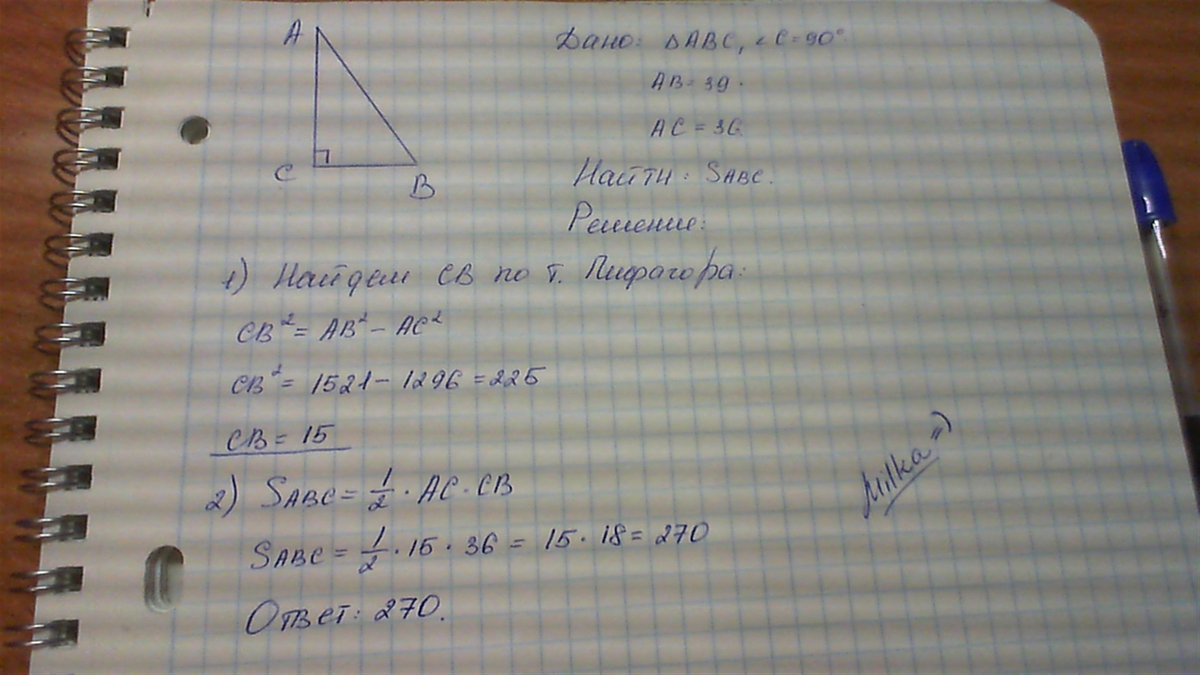 A
C
B
Дано: ΔABC, ∠C=90°
AB=39.
AC=36.
Найти: SABC.
Решение:
1) Найдем CB по т. Пифагора:
CB²=AB²-AC²
CB²=1521-1296=225
CB=15
2) SABC=1/2·AC·CB
SABC=1/2·15·36=15·18=270
Ответ: 270.
Milka =)